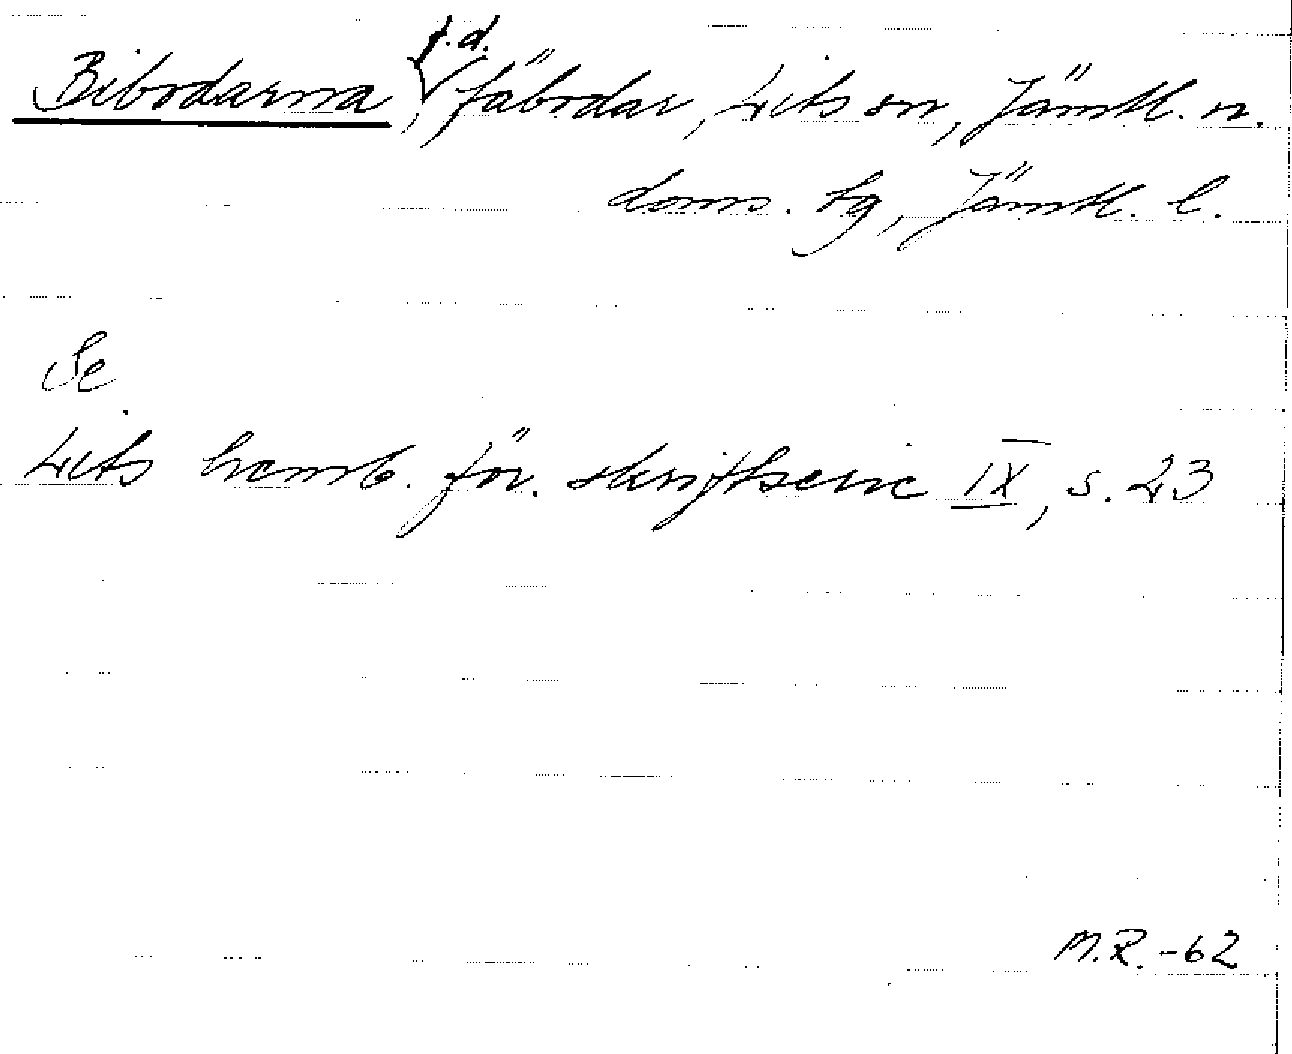 Bibodarna, f.d. fäbodar, Lits sn, Jämtl. n.
doms. tg, Jämtl. l.
Se
Lits hemb. för. skriftserie IX, s. 23
M.R. -62